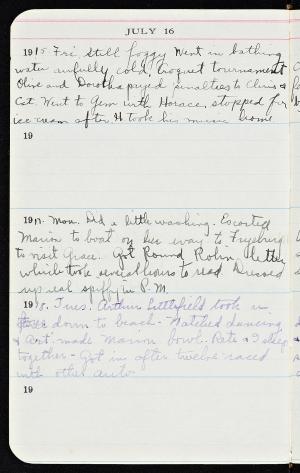 JULY 16
1915 Fri. Still foggy Went in bathing
water awfully cold. Croquet tournament
Olive and Dorothea payed penalties to Chris &
Cat. Went to Gem with Horace, stopped for
ice cream after. H took his music home
19
1917. Mon. Did a little washing. Escorted
Marion to boat on her way to Fryeburg
to visit Grace. Got Round Robin letter
which took several hours to read Dressed
up real spiffy in P.M.
1918. Tues. Arthur Littlefield took us
down to beach - Watched dancing
& Art. made Marion bowl. Pete & I sleep
together - Got in after twelve raced
with other auto.
19